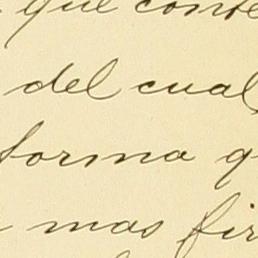 que conte
del cual
forma q
mas fir